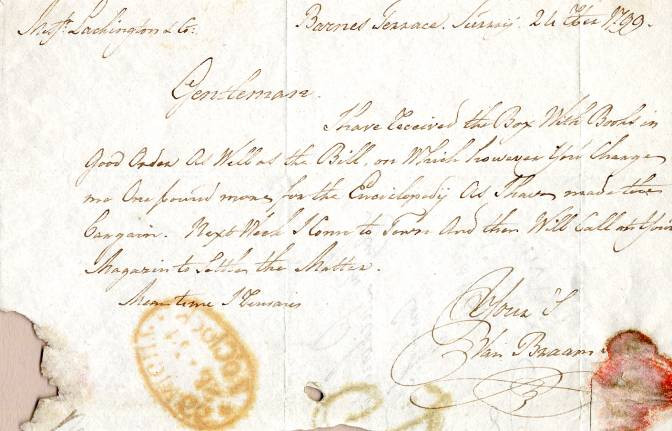 Messrs. Lackington & Co: Barnes Terrace. Surrij. 24 1799.
Gentleman.
I have received the Box With Books in
Good Order As Well as the Bill, on Which however You Charge
me One pound more, for the Enciclopedij As I have made the
bargain. Next Week I Come to Town And then Will Call at Your
Magazin to Settle the Matter.
Mean time I Remain
Your
Van Braam